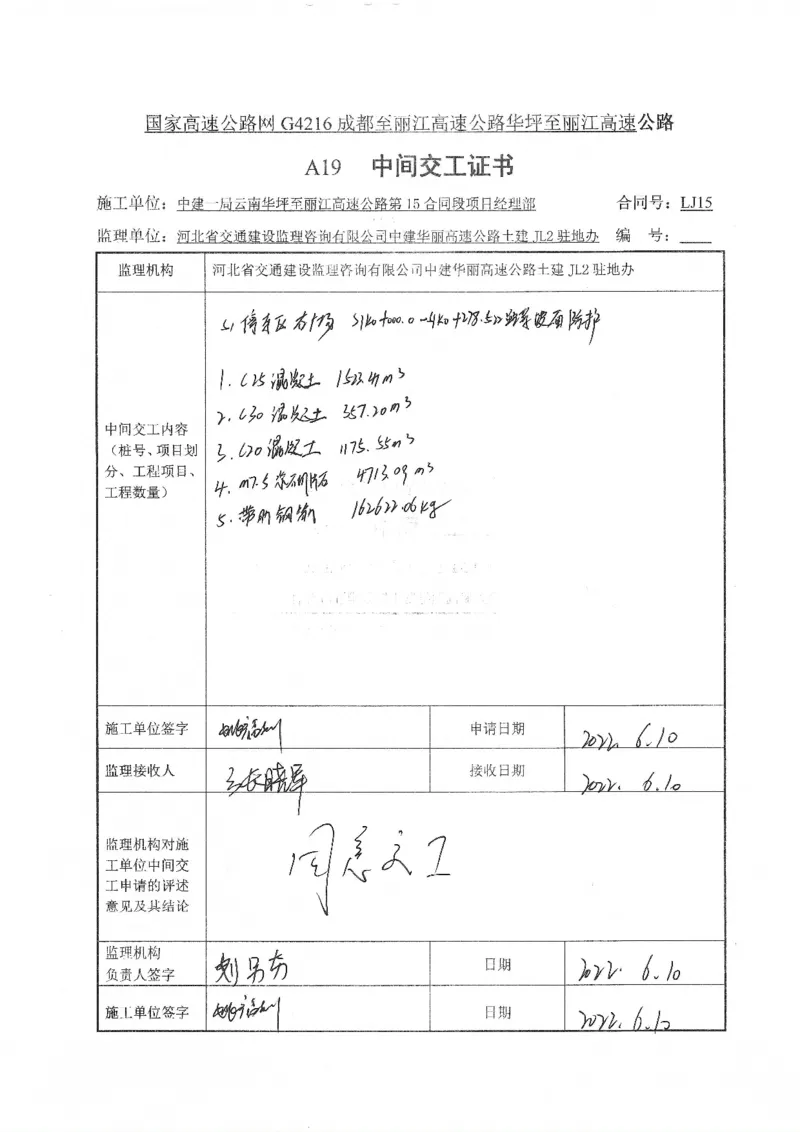 国家高速公路网 G4216 成都至丽江高速公路华坪至丽江高速公路
A19 中间交工证书
施工单位：中建一局云南华坪至丽江高速公路第 15 合同段项目经理部 合同号：LJ15
监理单位：河北省交通建设监理咨询有限公司中建华丽高速公路土建 JL2 驻地办 编 号：
监理机构 河北省交通建设监理咨询有限公司中建华丽高速公路土建 JL2 驻地办
S1停车区右广场
中间交工内容
（桩号、项目划
分、工程项目、
工程数量）
1. C25混凝土
2. C30混凝土 357.20m³
3. C20混凝土 1175.55m³
4. m7.5浆砌片石 4713.09m³
5. 带肋钢筋 162622.06kg
施工单位签字 申请日期 2022.6.10
监理接收人 接收日期 2022.6.10
监理机构对施
工单位中间交
工申请的评述
意见及其结论
同意交工
监理机构
负责人签字 日期 2022.6.10
施工单位签字 日期 2022.6.10